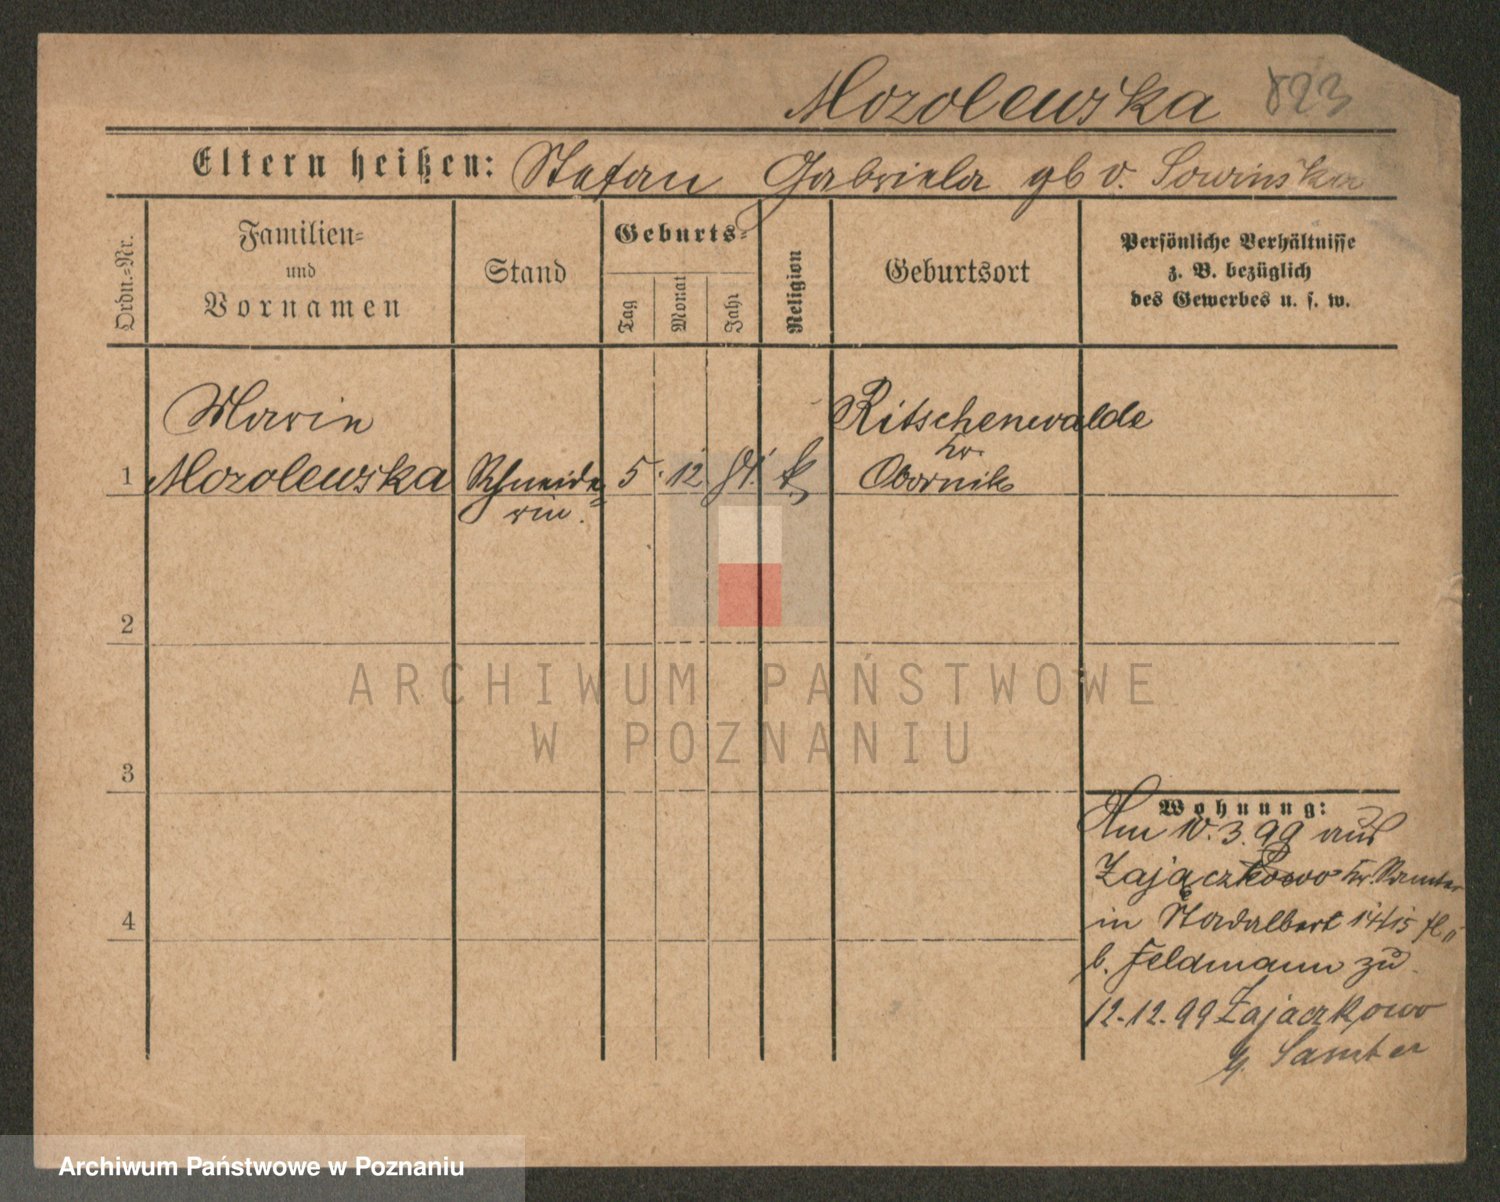 Mozolewska 823
Eltern heißen: Stefan Gabriela gb v. Sowinska
Ordn.-Nr.
Familien-
und
Vornamen
Stand
Geburts-
Tag
Monat
Jahr
Religion
Geburtsort
Persönliche Verhältnisse
z. B. bezüglich
des Gewerbes u. s. w.
Marie
Mozolewska
1
Schneide-
rin.
5. 12. 81. k
Ritschenwalde
Kr.
Obornik
2
ARCHIWUM PAŃSTWOWE
W POZNANIU
3
Wohnung:
Am 10.3.99 aus
Zajączkowo Kr. Samter
in Stadalbert 14/15
b. Feldmann zu
4
12.12.99 Zajaczkowo
Samter
Archiwum Państwowe w Poznaniu